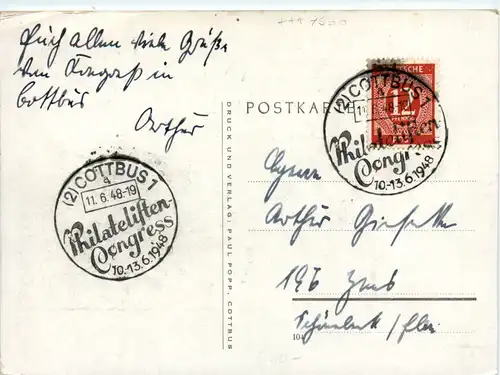 Euch allen viele Grüße
vom Kongreß in
Cottbus
Arthur
(2) COTTBUS 1
a
11.6.48-19
Philatelisten-
Congress
10.-13.6.1948
DRUCK UND VERLAG: PAUL POPP, COTTBUS
POSTKARTE
DEUTSCHE
12
PFENNIG
(2) COTTBUS 1
a
11.6.48-
Philatelisten-
Congress
10.-13.6.1948
Arthur
196
104